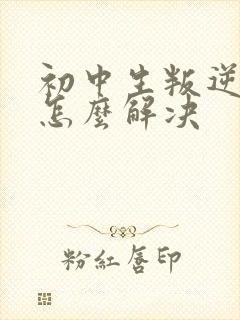 初中生叛逆
怎麼解决
粉紅唇印